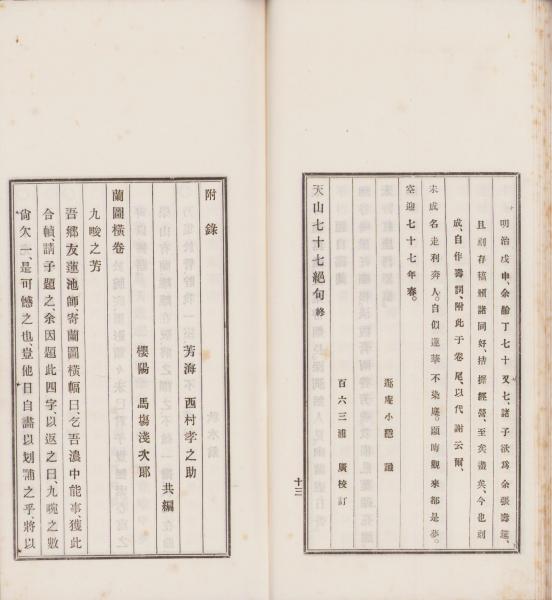 明治戊申、余齡丁七十又七、諸子欲爲余張壽筵、
且刻存稿頒諸同好、拮据經營、至矣盡矣、今也刻
成、自作壽詞、附此于卷尾、以代謝云爾、
未成名走利奔人。自似蓮華不染塵。顧晦觀來都是夢。
空迎七十七年春。
小隱
百六三浦 廣校訂
天山七十七絕句 終
十三
附錄
芳海 西村孝之助
櫻陽 馬塲淺次郞
共編
蘭圖橫卷
九畹之芳
吾鄕友蓮池師、寄蘭圖橫幅曰、乞吾濃中能事、獲此
合幀、請予題之、余因題此四字以返之曰、九畹之數
尙欠一、是可憾之也、豈他日自畵以划補之乎、將以